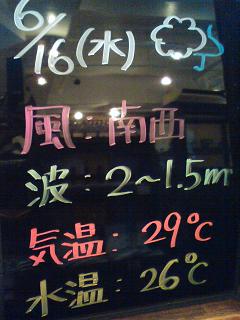 6/16(水)
風:南西
波:2~1.5m
気温:29℃
水温:26℃